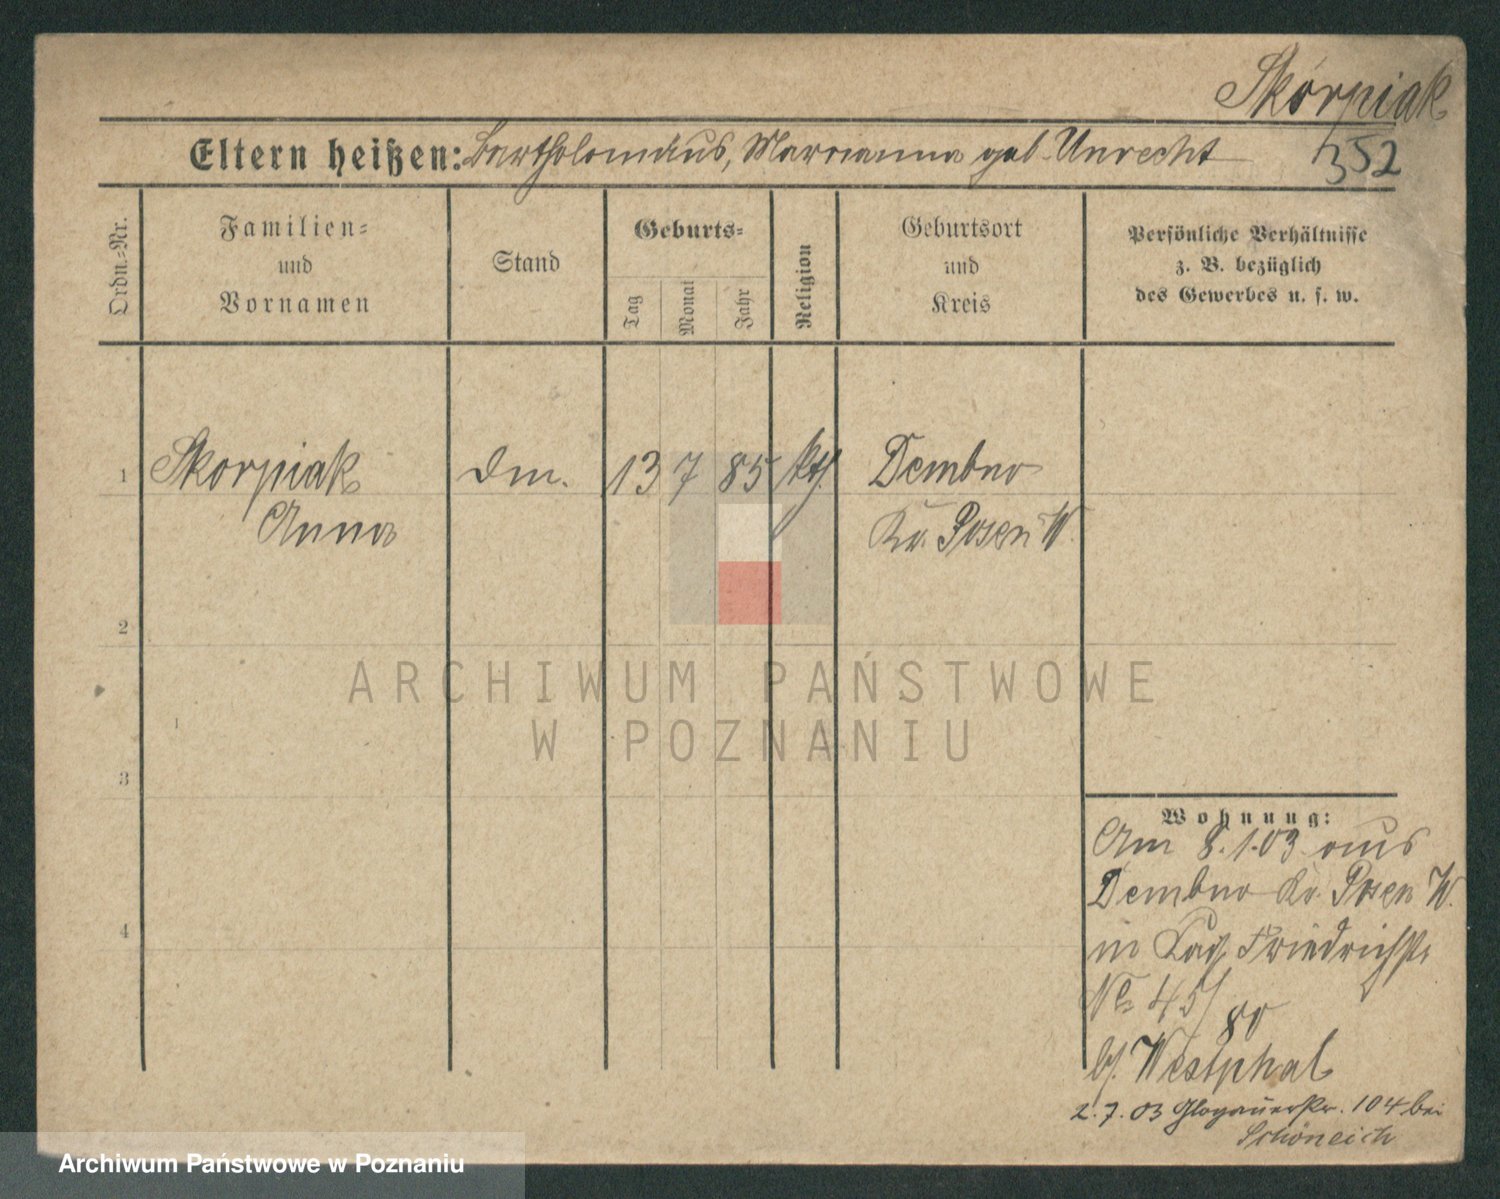 Skórpiak
352
Eltern heißen: Bartholomäus, Marianna geb. Unrecht
Ordn.=Nr.
Familien=
und
Vornamen
Stand
Geburts=
Tag
Monat
Jahr
Religion
Geburtsort
und
Kreis
Persönliche Verhältnisse
z. B. bezüglich
des Gewerbes u. s. w.
1 Skorpiak dm. 13 7 85 kth. Dembno
Anna Kr. Posen W.
2
3
4
ARCHIWUM PAŃSTWOWE
W POZNANIU
Wohnung:
Am 8.1.03 aus
Dembno Kr. Posen W.
in Friedrichstr
No 45/80
b/. Westphal
2.7.03 Glogauerstr. 104 bei
Schöneich
Archiwum Państwowe w Poznaniu